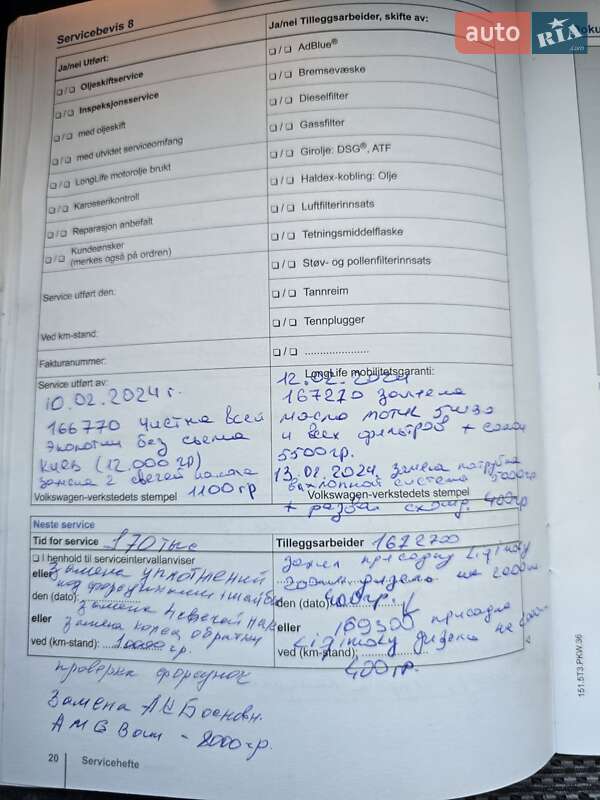 auto RIA .com
Servicebevis 8
Ja/nei Utført:
❏ / ❏ Oljeskiftservice
❏ / ❏ Inspeksjonsservice
❏ / ❏ med oljeskift
❏ / ❏ med utvidet serviceomfang
❏ / ❏ LongLife motorolje brukt
❏ / ❏ Karosserikontroll
❏ / ❏ Reparasjon anbefalt
❏ / ❏ Kundeønsker
(merkes også på ordren)
Service utført den:
Ved km-stand:
Fakturanummer:
Service utført av:
10.02.2024 г.
166770 Чистка всей
экологии без съема
Киев (12.000 гр)
замена 2 свечей накала
1100 гр
Volkswagen-verkstedets stempel
Ja/nei Tilleggsarbeider, skifte av:
❏ / ❏ AdBlue®
❏ / ❏ Bremsevæske
❏ / ❏ Dieselfilter
❏ / ❏ Gassfilter
❏ / ❏ Girolje: DSG®, ATF
❏ / ❏ Haldex-kobling: Olje
❏ / ❏ Luftfilterinnsats
❏ / ❏ Tetningsmiddelflaske
❏ / ❏ Støv- og pollenfilterinnsats
❏ / ❏ Tannreim
❏ / ❏ Tennplugger
❏ / ❏ .....................
LongLife mobilitetsgaranti:
12.02.2024
167270 замена
масло мотюль 5w30
и всех фильтров +
5500 гр.
13.02.2024. замена патрубка
выхлопной система 5000 гр
Volkswagen-verkstedets stempel
+ развал схожд. 400 гр
Neste service
Tid for service 170 тыс
❏ I henhold til serviceintervallanviser
замена уплотнений
eller
под форсунками
den (dato):
eller
замена
ved (km-stand): 10000 гр.
проверка форсунок
Замена АКБ основн.
AMG - 8000 гр.
Tilleggsarbeider 1672700
присадку
den (dato): 400 гр.
eller 169300 присадка
ved (km-stand):
400 гр.
20
Servicehefte
151.5T3.PKW.36